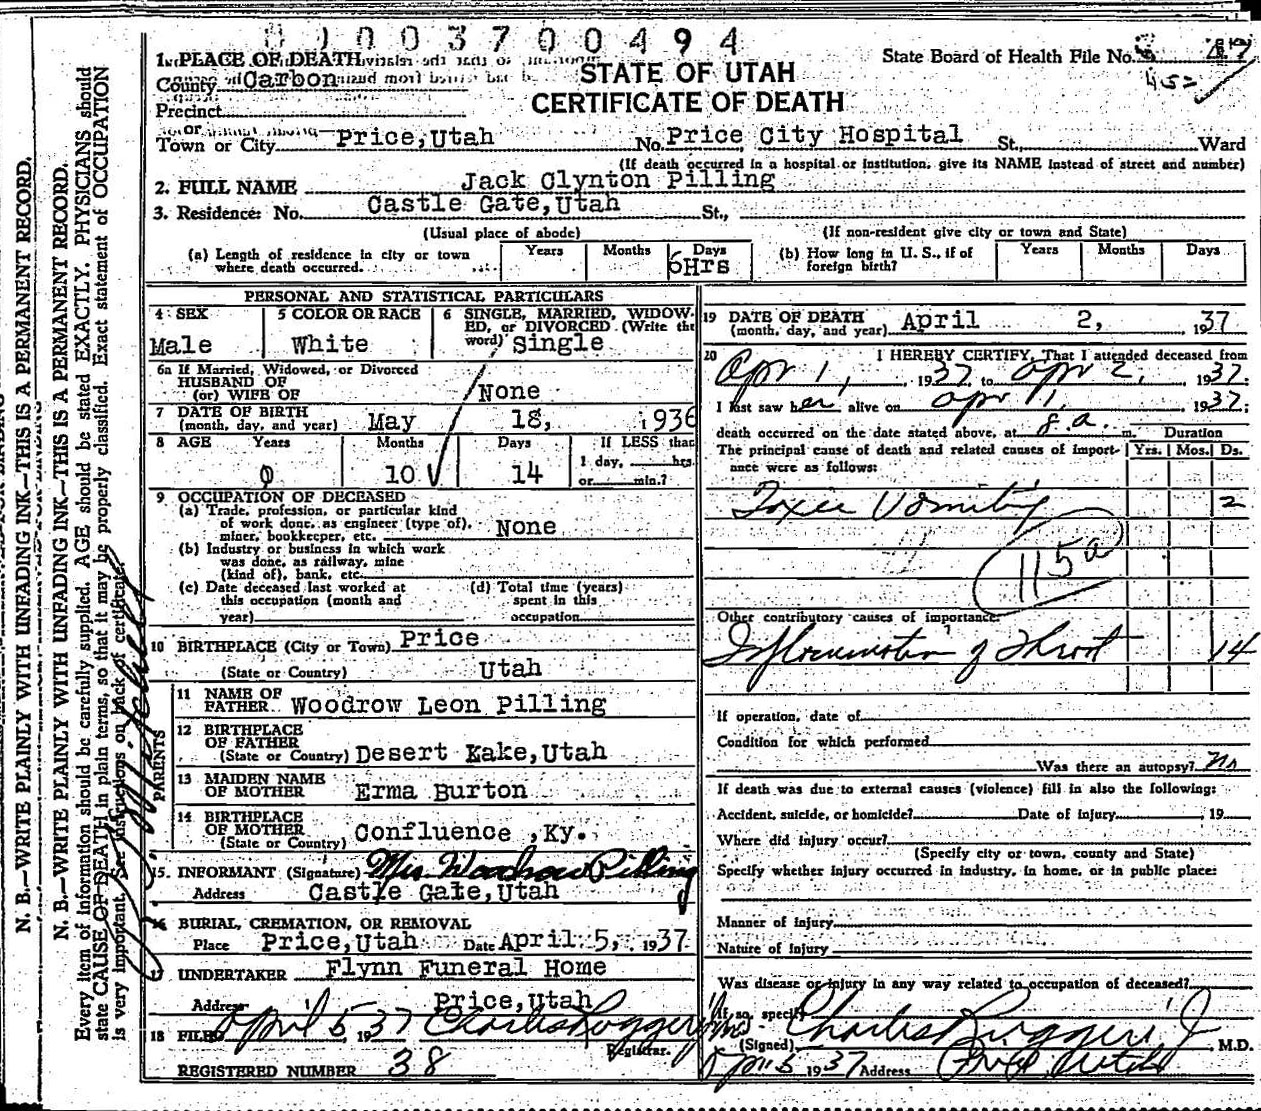 0100370 0494
1. PLACE OF DEATH
State Board of Health File No.
County Carbon
STATE OF UTAH
CERTIFICATE OF DEATH
452
Precinct
or
Town or City Price, Utah No. Price City Hospital St., Ward
(If death occurred in a hospital or institution, give its NAME instead of street and number)
2. FULL NAME Jack Clynton Pilling
3. Residence: No. Castle Gate, Utah St.,
(Usual place of abode) (If non-resident give city or town and State)
(a) Length of residence in city or town where death occurred. Years Months Days 6Hrs
(b) How long in U. S., if of foreign birth? Years Months Days
PERSONAL AND STATISTICAL PARTICULARS
4 SEX Male
5 COLOR OR RACE White
6 SINGLE, MARRIED, WIDOWED, or DIVORCED (Write the word) Single
6a If Married, Widowed, or Divorced
HUSBAND OF
(or) WIFE OF None
7 DATE OF BIRTH
(month, day, and year) May 18, 1936
8 AGE Years Months Days If LESS than
0 10 14 1 day, hrs.
or min.?
9 OCCUPATION OF DECEASED
(a) Trade, profession, or particular kind
of work done, as engineer (type of),
miner, bookkeeper, etc. None
(b) Industry or business in which work
was done, as railway, mine
(kind of), bank, etc.
(c) Date deceased last worked at
this occupation (month and
year)
(d) Total time (years)
spent in this
occupation
10 BIRTHPLACE (City or Town) Price
(State or Country) Utah
PARENTS
11 NAME OF
FATHER Woodrow Leon Pilling
12 BIRTHPLACE
OF FATHER
(State or Country) Desert Kake, Utah
13 MAIDEN NAME
OF MOTHER Erma Burton
14 BIRTHPLACE
OF MOTHER
(State or Country) Confluence ,Ky.
15. INFORMANT (Signature) Mrs Woodrow Pilling
Address Castle Gate, Utah
16 BURIAL, CREMATION, OR REMOVAL
Place Price, Utah Date April 5, 1937
17 UNDERTAKER Flynn Funeral Home
Address Price, Utah
18 FILED April 5, 1937 Charles Ruggeri
Registrar.
REGISTERED NUMBER 38
19 DATE OF DEATH
(month, day, and year) April 2, 1937
20 I HEREBY CERTIFY, That I attended deceased from
Apr 1, 1937, to Apr 2, 1937;
I last saw h alive on Apr 1, 1937;
death occurred on the date stated above, at 8 a. m. Duration
The principal cause of death and related causes of importance were as follows: Yrs. Mos. Ds.
Toxic Vomiting 2
115a
Other contributory causes of importance:
Inflammation of Throat 14
If operation, date of
Condition for which performed
Was there an autopsy? No
If death was due to external causes (violence) fill in also the following:
Accident, suicide, or homicide? Date of injury 19
Where did injury occur?
(Specify city or town, county and State)
Specify whether injury occurred in industry, in home, or in public place:
Manner of injury
Nature of injury
Was disease or injury in any way related to occupation of deceased?
If so, specify
(Signed) Charles Ruggeri Jr, M.D.
Apr 5 1937 Address Price Utah
N. B.—WRITE PLAINLY WITH UNFADING INK—THIS IS A PERMANENT RECORD.
N. B.—WRITE PLAINLY WITH UNFADING INK—THIS IS A PERMANENT RECORD.
Every item of information should be carefully supplied. AGE should be stated EXACTLY. PHYSICIANS should
state CAUSE OF DEATH in plain terms, so that it may be properly classified. Exact statement of OCCUPATION
is very important. See instructions on back of certificate.